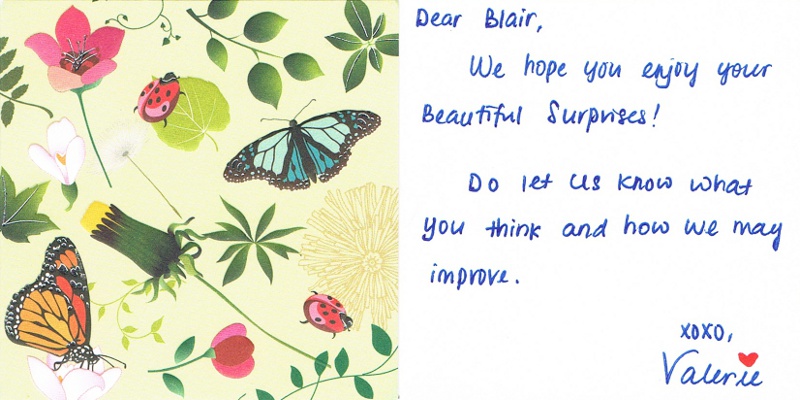 Dear Blair,
We hope you enjoy your
Beautiful Surprises!
Do let us know what
you think and how we may
improve.
xoxo,
Valerie